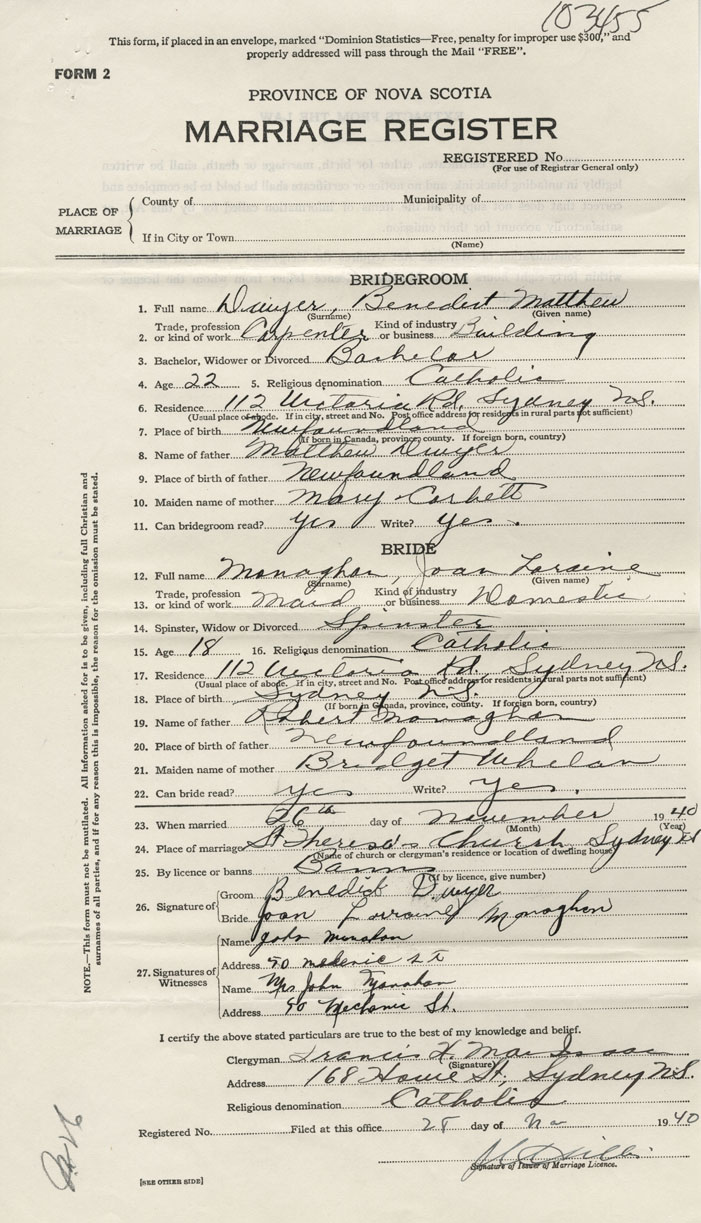 103455
This form, if placed in an envelope, marked "Dominion Statistics—Free, penalty for improper use $300," and
properly addressed will pass through the Mail "FREE".
FORM 2
PROVINCE OF NOVA SCOTIA
MARRIAGE REGISTER
REGISTERED No.
(For use of Registrar General only)
PLACE OF MARRIAGE
County of Municipality of
If in City or Town
(Name)
BRIDEGROOM
1. Full name Dwyer, Benedict Matthew
(Surname) (Given name)
2. Trade, profession or kind of work Carpenter Kind of industry or business Building
3. Bachelor, Widower or Divorced Bachelor
4. Age 22 5. Religious denomination Catholic
6. Residence 112 Victoria Rd, Sydney N.S.
(Usual place of abode. If in city, street and No. Post office address for residents in rural parts not sufficient)
7. Place of birth Newfoundland
(If born in Canada, province, county. If foreign born, country)
8. Name of father Matthew Dwyer
9. Place of birth of father Newfoundland
10. Maiden name of mother Mary Corbett
11. Can bridegroom read? yes Write? yes.
BRIDE
12. Full name Monaghan, Joan Loraine
(Surname) (Given name)
13. Trade, profession or kind of work Maid Kind of industry or business Domestic
14. Spinster, Widow or Divorced Spinster
15. Age 18 16. Religious denomination Catholic
17. Residence 112 Victoria Rd, Sydney N.S.
(Usual place of abode. If in city, street and No. Post office address for residents in rural parts not sufficient)
18. Place of birth Sydney N.S.
(If born in Canada, province, county. If foreign born, country)
19. Name of father Robert Monaghan
20. Place of birth of father Newfoundland
21. Maiden name of mother Bridget Whelan
22. Can bride read? yes Write? yes.
23. When married 26th day of November 1940
(Month) (Year)
24. Place of marriage St Theresa's Church Sydney
(Name of church or clergyman's residence or location of dwelling house)
25. By licence or banns Banns
(If by licence, give number)
26. Signature of Groom Benedict Dwyer
Bride Joan Lorraine Monaghan
27. Signatures of Witnesses
Name John Monahan
Address 50 St
Name Mrs John Monahan
Address 50 Mechanic St.
I certify the above stated particulars are true to the best of my knowledge and belief.
Clergyman Francis X. MacIsaac
(Signature)
Address 168 Howie St, Sydney N.S.
Religious denomination Catholic
Registered No. Filed at this office 28 day of No 1940
Signature of Issuer of Marriage Licence.
[SEE OTHER SIDE]
NOTE.—This form must not be mutilated. All information asked for is to be given, including full Christian and
surnames of all parties, and if for any reason this is impossible, the reason for the omission must be stated.